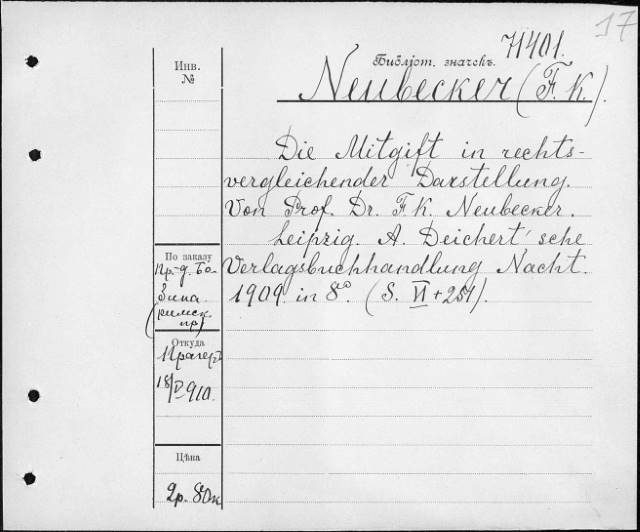 17
71401.
Библіот. значокъ
Neubecker (F. K.).
Инв.
№
Die Mitgift in rechts-
vergleichender Darstellung.
Von Prof. Dr. F. K. Neubecker.
Leipzig. A. Deichert'sche
Verlagsbuchhandlung Nachf.
1909. in 8°. (S. VI + 251).
По заказу
пр-д. Бо-
Зина
(римск.
пр)
Откуда
Прагеръ
18/V 910.
Цѣна
2р. 80к